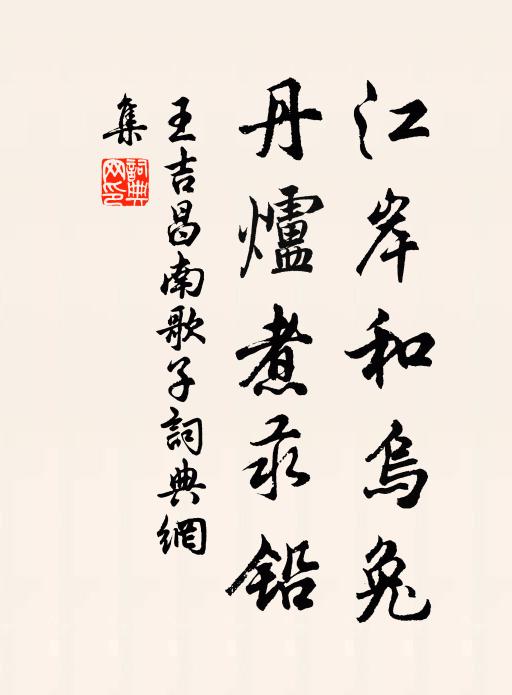 江岸和烏兔
丹爐煮汞鉛
王吉昌南歌子詞典網
集
詞典
網印